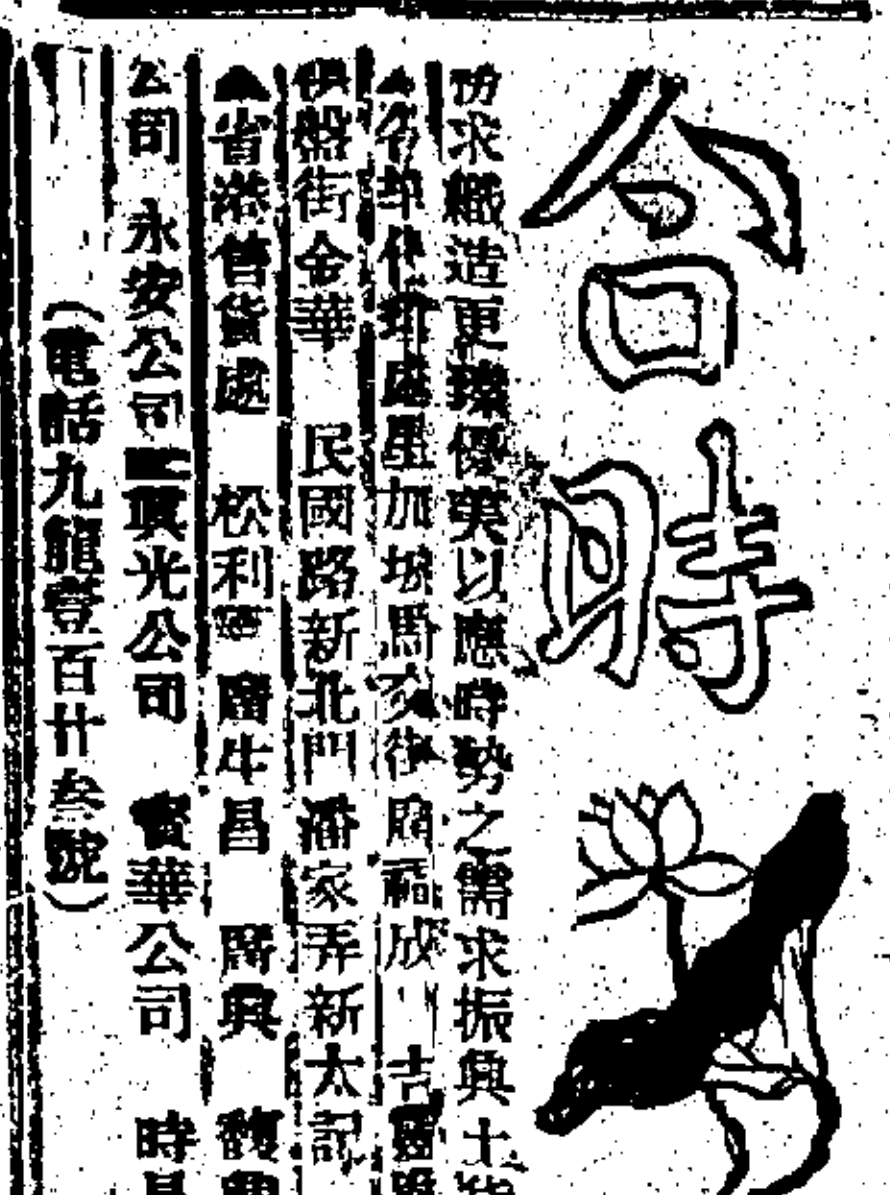 合時
求織造更臻優美以應時勢之需求振興土
各埠代理處星加坡馬交街 福成 吉
盤街金華 民國路新北門潘家弄新太記
▲省港售貨處 松利 廣生昌 廣興
公司 永安公司 光公司 寶華公司 時
(電話九龍壹百廿叁號)